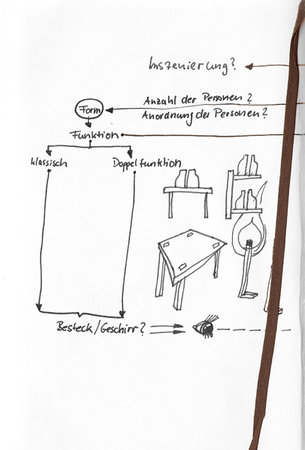 Inszenierung?
Anzahl der Personen?
Form
Anordnung der Personen?
Funktion
klassisch
Doppelfunktion
Besteck/Geschirr?